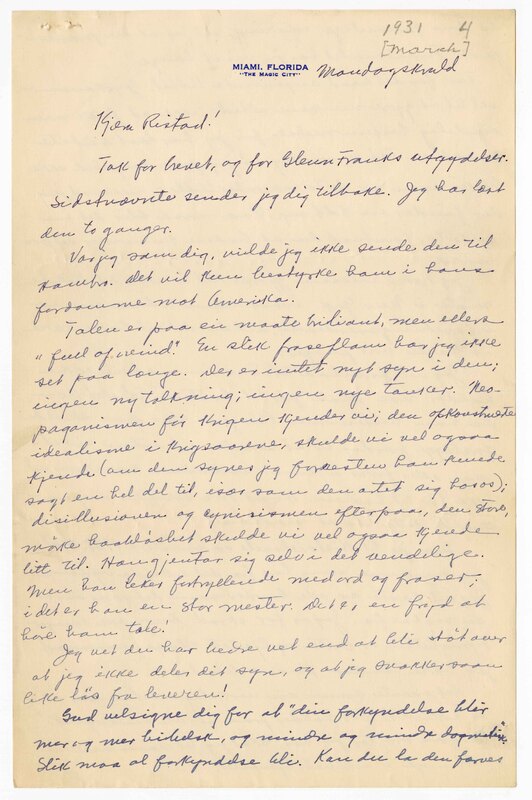 1931 4
[March]
MIAMI, FLORIDA
"THE MAGIC CITY"
Mandagskveld
Kjære Ristad!
Tak for brevet, og for Glenn Franks utgydelser.
Sidstnævnte sender jeg dig tilbake. Jeg har læst
den to ganger.
Var jeg som dig, vilde jeg ikke sende den til
Hambro. Det vil kun bestyrke ham i hans
fordomme mot Amerika.
Talen er paa en maate briliant, men ellers
"full of wind". En slik fraseflom har jeg ikke
set paa lange. Der er intet nyt syn i den;
ingen ny tolkning; ingen nye tanker. Neo-
paganismen för krigen kjender vi; den opkonstruerte
idealisme i krigsaarene, skulde vi vel ogsaa
kjende (om den synes jeg forresten han kunde
sagt en hel del til, især som den artet sig hos os);
disillusionen og cynisismen efterpaa, den store,
mörke haablöshet skulde vi vel ogsaa kjende
litt til. Han gjentar sig selv i det uendelige.
Men han leker fortryllende med ord og fraser;
i det er han en stor mester. Det er en fryd at
höre ham tale!
Jeg vet du har bedre vet end at bli stöt over
at jeg ikke deler dit syn, og at jeg snakker saan
like lös fra leveren!
Gud velsigne dig for at "din forkyndelse blir
mer og mer bibelsk, og mindre og mindre dogmatisk".
Slik maa al forkyndelse bli. Kan du la den farves